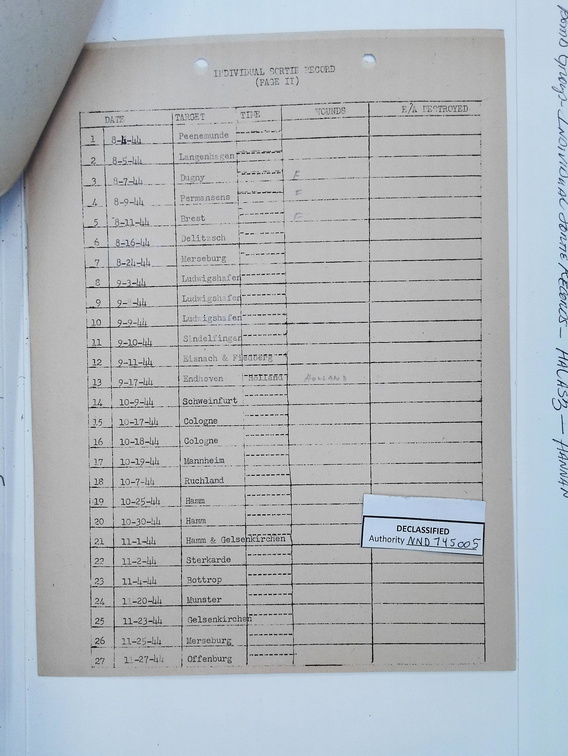 INDIVIDUAL SORTIE RECORD
(PAGE II)
DATE TARGET TIME WOUNDS E/A DESTROYED
1 8-4-44 Peenemunde
2 8-5-44 Langenhagen
3 8-7-44 Dugny F
4 8-9-44 Permansens F
5 8-11-44 Brest F
6 8-16-44 Delitzsch
7 8-24-44 Merseburg
8 9-3-44 Ludwigshafen
9 9- -44 Ludwigshafen
10 9-9-44 Ludwigshafen
11 9-10-44 Sindelfingen
12 9-11-44 Eisnach &
13 9-17-44 Endhoven Holland HOLLAND
14 10-9-44 Schweinfurt
15 10-17-44 Cologne
16 10-18-44 Cologne
17 10-19-44 Mannheim
18 10-7-44 Ruchland
19 10-25-44 Hamm
20 10-30-44 Hamm
21 11-1-44 Hamm & Gelsenkirchen
22 11-2-44 Sterkarde
23 11-4-44 Bottrop
24 11-20-44 Munster
25 11-23-44 Gelsenkirchen
26 11-25-44 Merseburg
27 11-27-44 Offenburg
DECLASSIFIED
Authority NND 745005
INDIVIDUAL SORTIE RECORDS - HALASZ - HANNAN